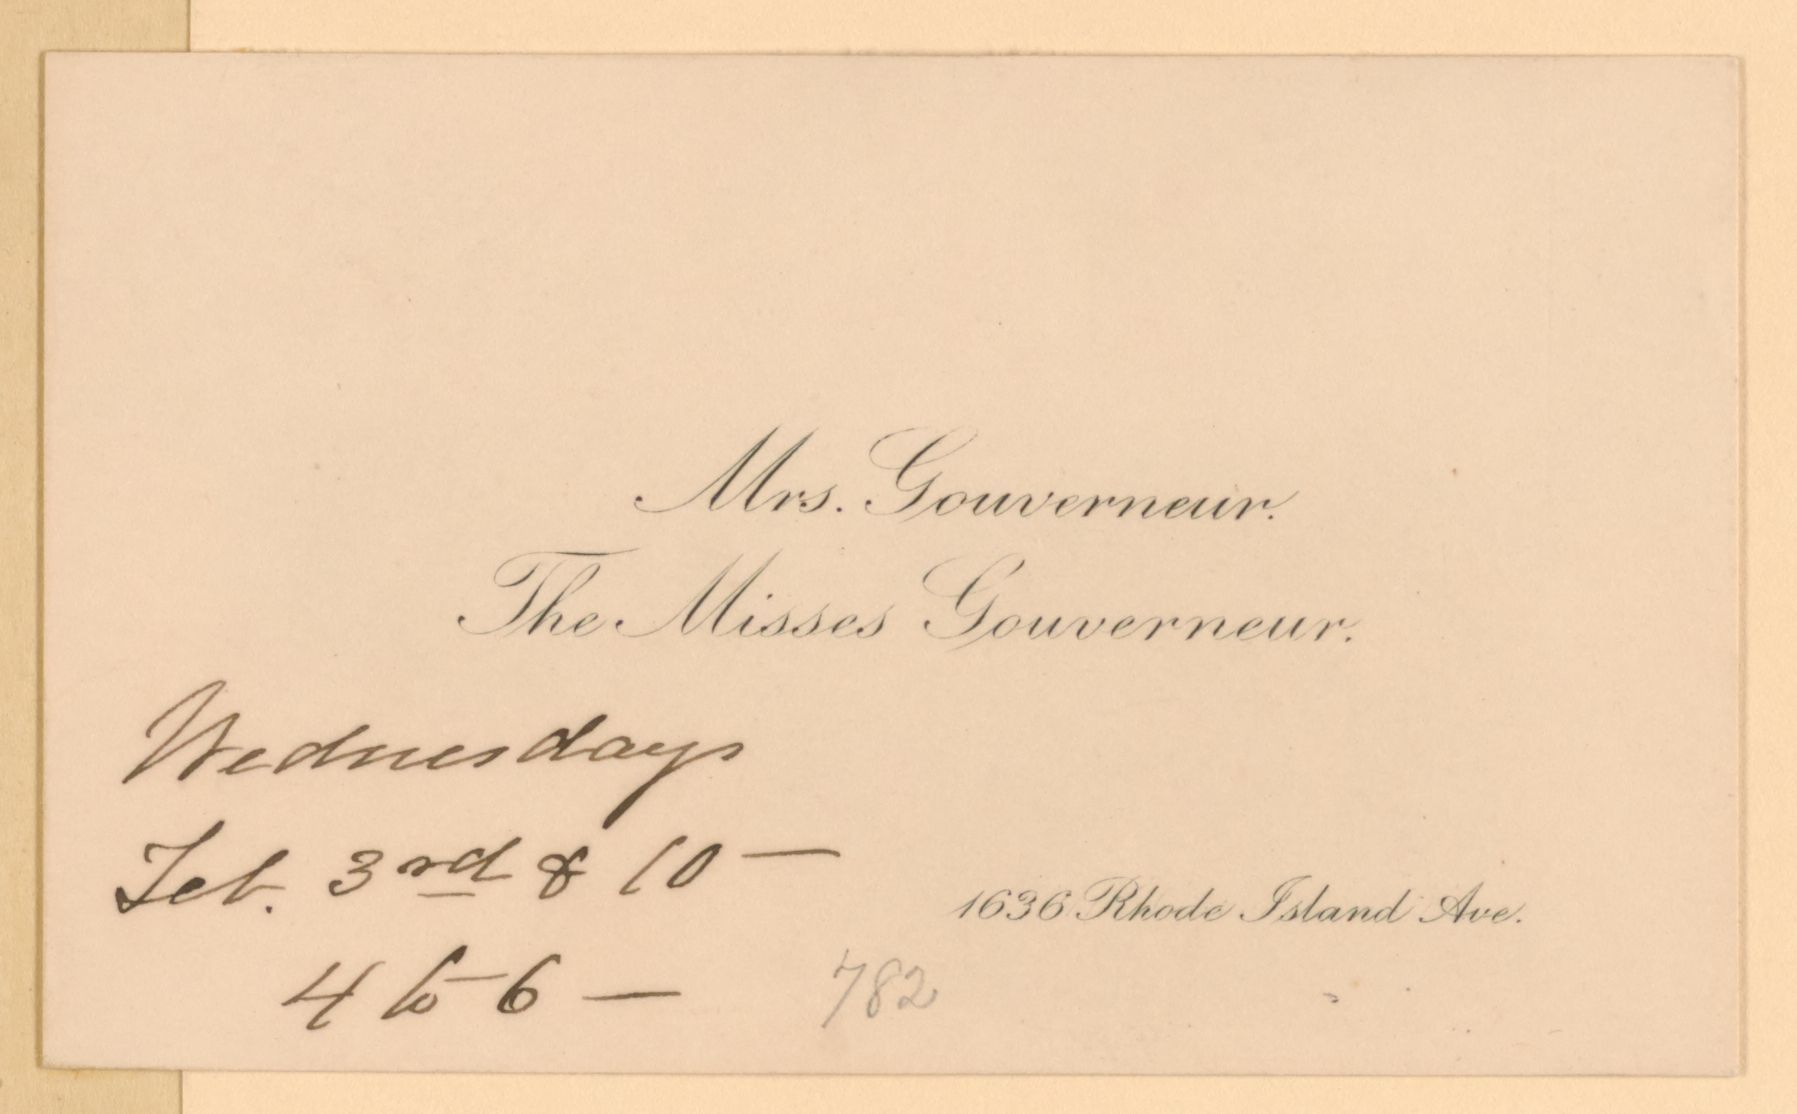 Mrs. Gouverneur.
The Misses Gouverneur.
Wednesdays
Feb. 3rd & 10 —
4 to 6 —
1636 Rhode Island Ave.
782